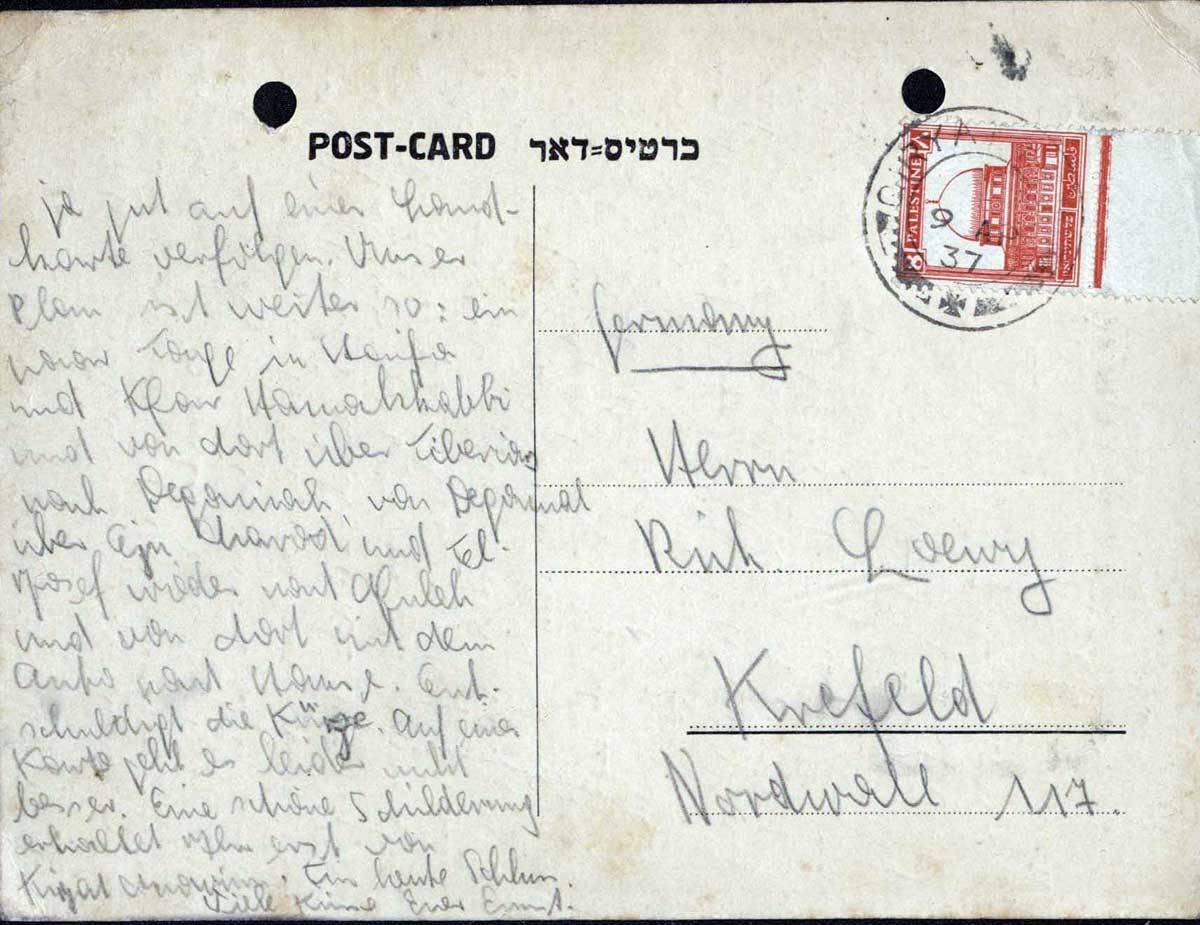 POST-CARD כרטיס=דאר
ja gut auf einer Land-
karte verfolgen. Unser
Plan ist weiter so: ein
paar Tage in Haifa
und Kfar Hamakkabbi
und von dort über Tiberias
nach Deganiah, von Deganiah
über Ejn Charod und Tel-
Josef wieder nach Afuleh
und von dort mit dem
Auto nach Hause. Ent-
schuldigt die Kürze. Auf einer
Karte geht es leider nicht
besser. Eine schöne Schilderung
erhaltet Ihr erst von
Kirjat Anavim. Für heute Schluss.
Viele Küsse Euer Ernst.
PALESTINE
فلسطين
8
9 AU
37
Germany
Herrn
Rich. Loewy
Krefeld
Nordwall 117.